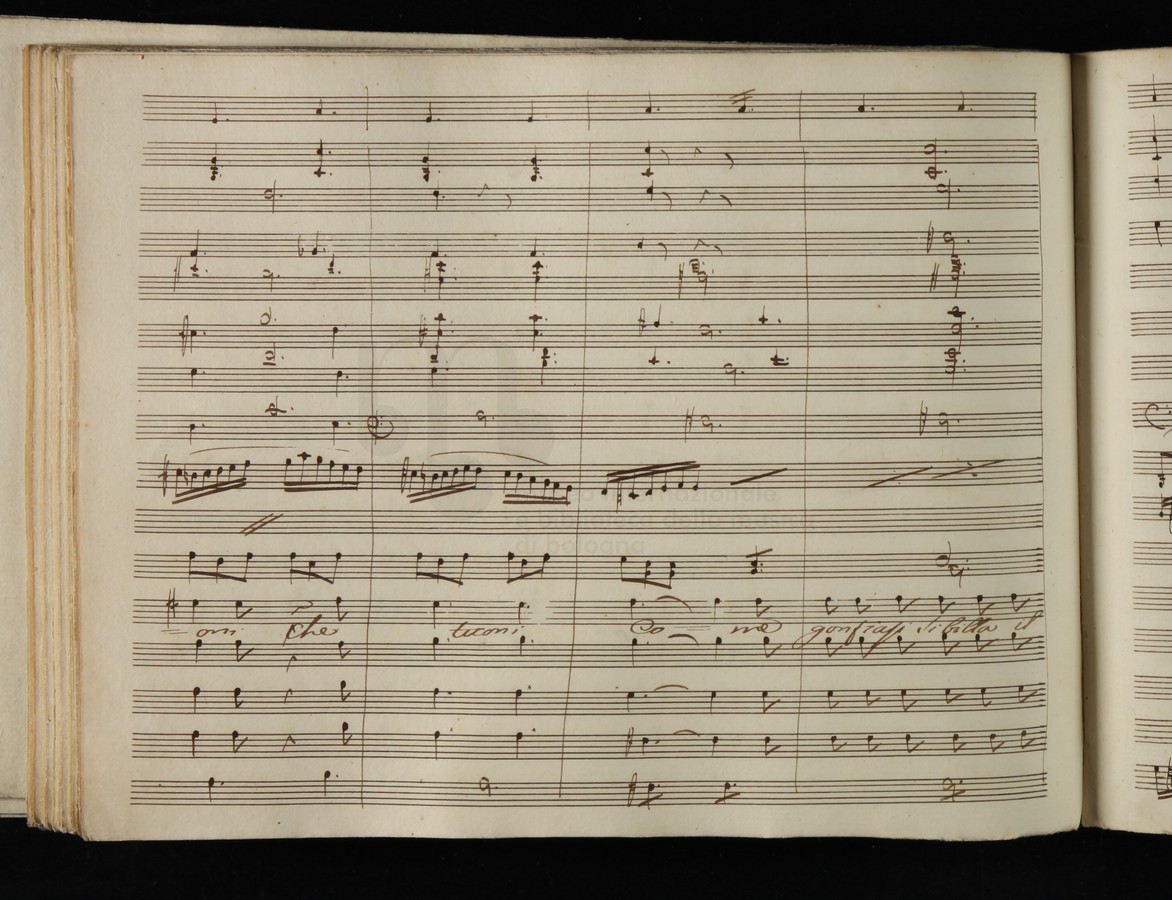 museo internazionale
e biblioteca della musica
di bologna
oni che tuoni Co me gonfiasi sibilla il